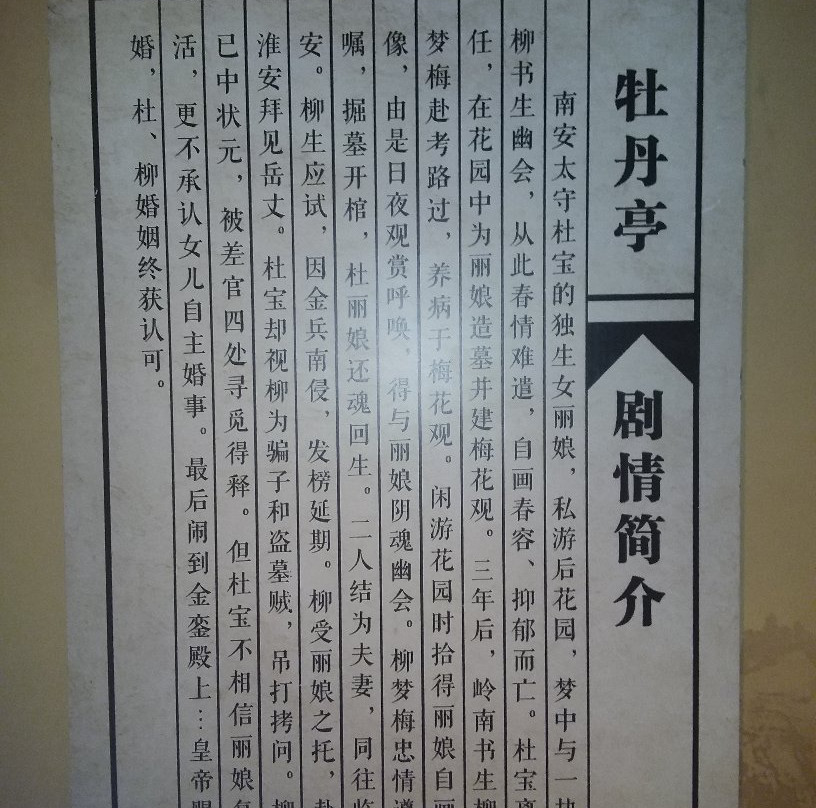 牡丹亭
剧情简介
南安太守杜宝的独生女丽娘，私游后花园，梦中与一
柳书生幽会，从此春情难遣，自画春容、抑郁而亡。杜宝
任，在花园中为丽娘造墓并建梅花观。三年后，岭南书生
梦梅赴考路过，养病于梅花观。闲游花园时拾得丽娘自
像，由是日夜观赏呼唤，得与丽娘阴魂幽会。柳梦梅忠情
嘱，掘墓开棺，杜丽娘还魂回生。二人结为夫妻，同往
安。柳生应试，因金兵南侵，发榜延期。柳受丽娘之托，
淮安拜见岳丈。杜宝却视柳为骗子和盗墓贼，吊打拷问。
已中状元，被差官四处寻觅得释。但杜宝不相信丽娘
活，更不承认女儿自主婚事。最后闹到金銮殿上…皇帝
婚，杜、柳婚姻终获认可。